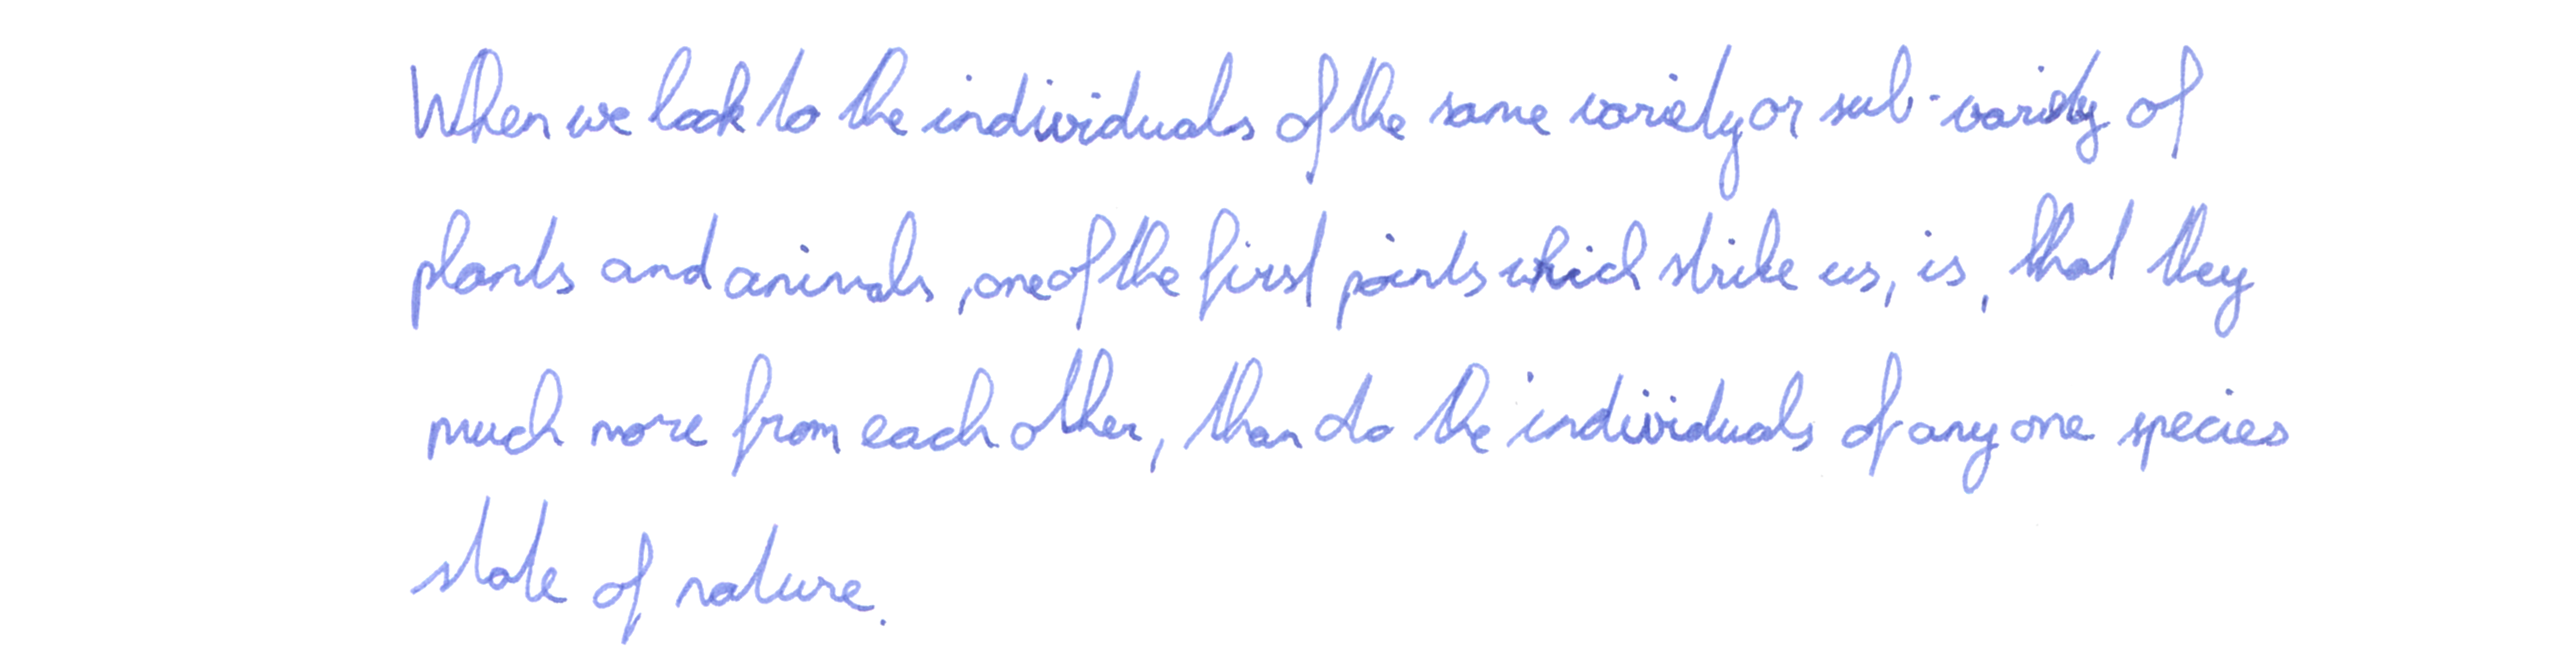 When we look to the individuals of the same variety or sub-variety of
plants and animals, one of the first points which strike us, is, that they
much more from each other, than do the individuals of any one species
state of nature.